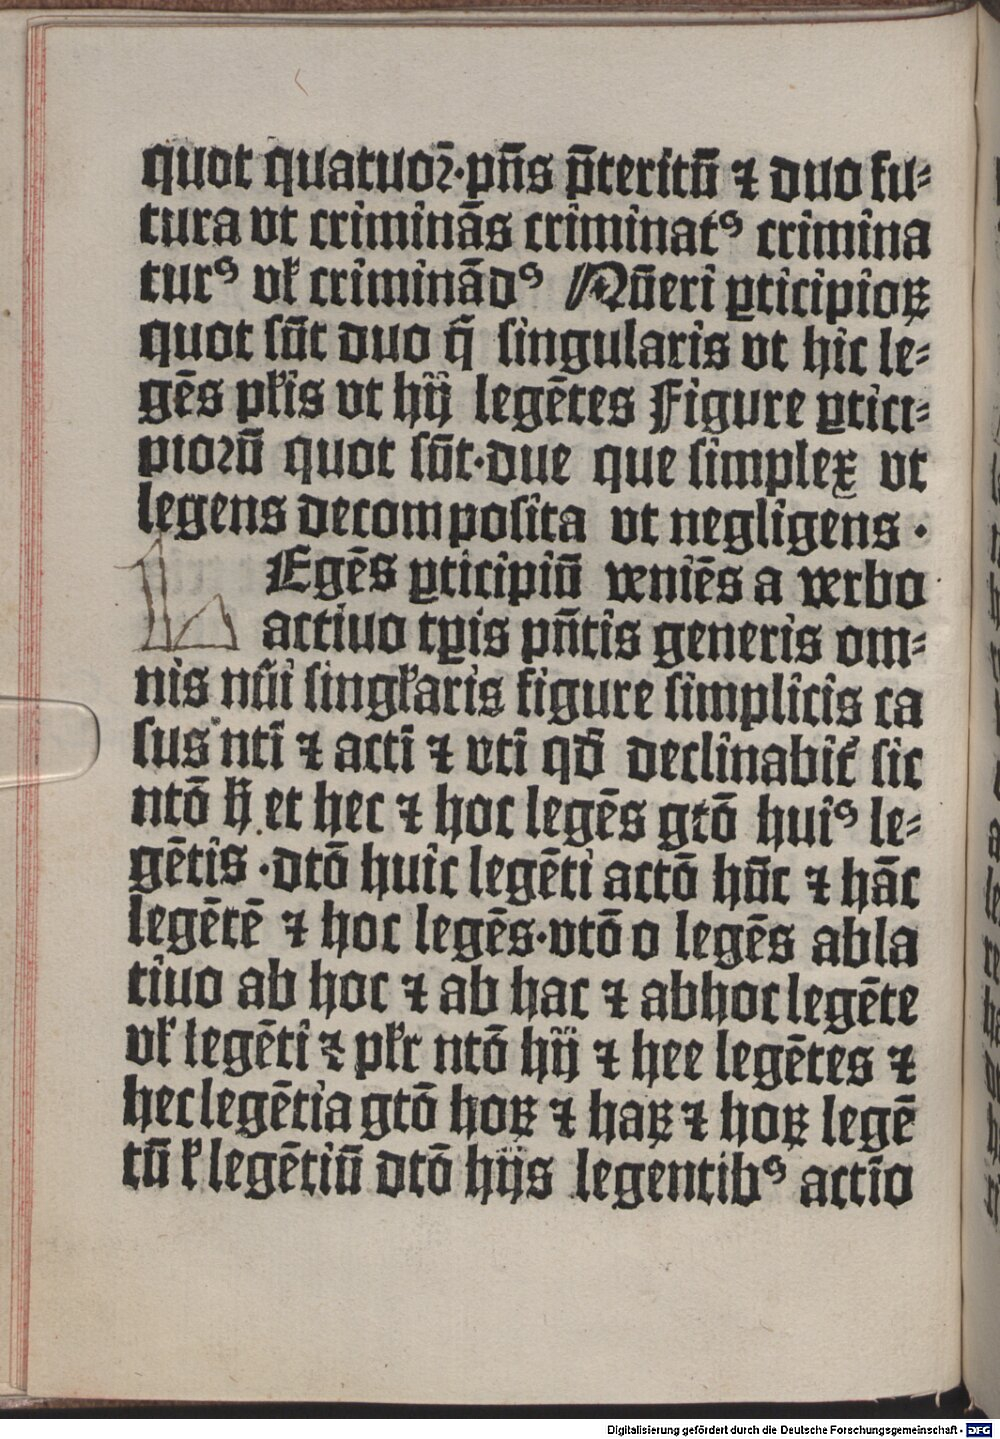 quot quatuoꝛ·pn̄s p̄teritū ⁊ duo fu⸗
tura vt criminās criminatꝰ crimina
turꝰ vƚ criminādꝰ Nūeri ꝑticipioꝝ
quot sūt duo q̄ singularis vt hic le⸗
gēs pƚis vt hij legētes Figure ꝑtici⸗
pioꝛū quot sūt·due que simplex vt
legens decomposita vt negligens ·
LEgēs ꝑticipiū veniēs a verbo
actiuo tꝑis pn̄tis generis om⸗
nis nūi singƚaris figure simplicis ca
sus nti ⁊ acti ⁊ vti qd̄ declinabiť sic
ntō h̄ et hec ⁊ hoc legēs gtō huiꝰ le⸗
gētis ·dtō huic legēti actō hūc ⁊ hāc
legētē ⁊ hoc legēs·vtō o legēs abla
tiuo ab hoc ⁊ ab hac ⁊ abhoc legēte
vƚ legēti ⁊ pƚr ntō hij ⁊ hee legētes ⁊
hec legētia gtō hoꝝ ⁊ haꝝ ⁊ hoꝝ legē
tū ƚ legētiū dtō hijs legentibꝰ actīo
Digitalisierung gefördert durch die Deutsche Forschungsgemeinschaft - DFG